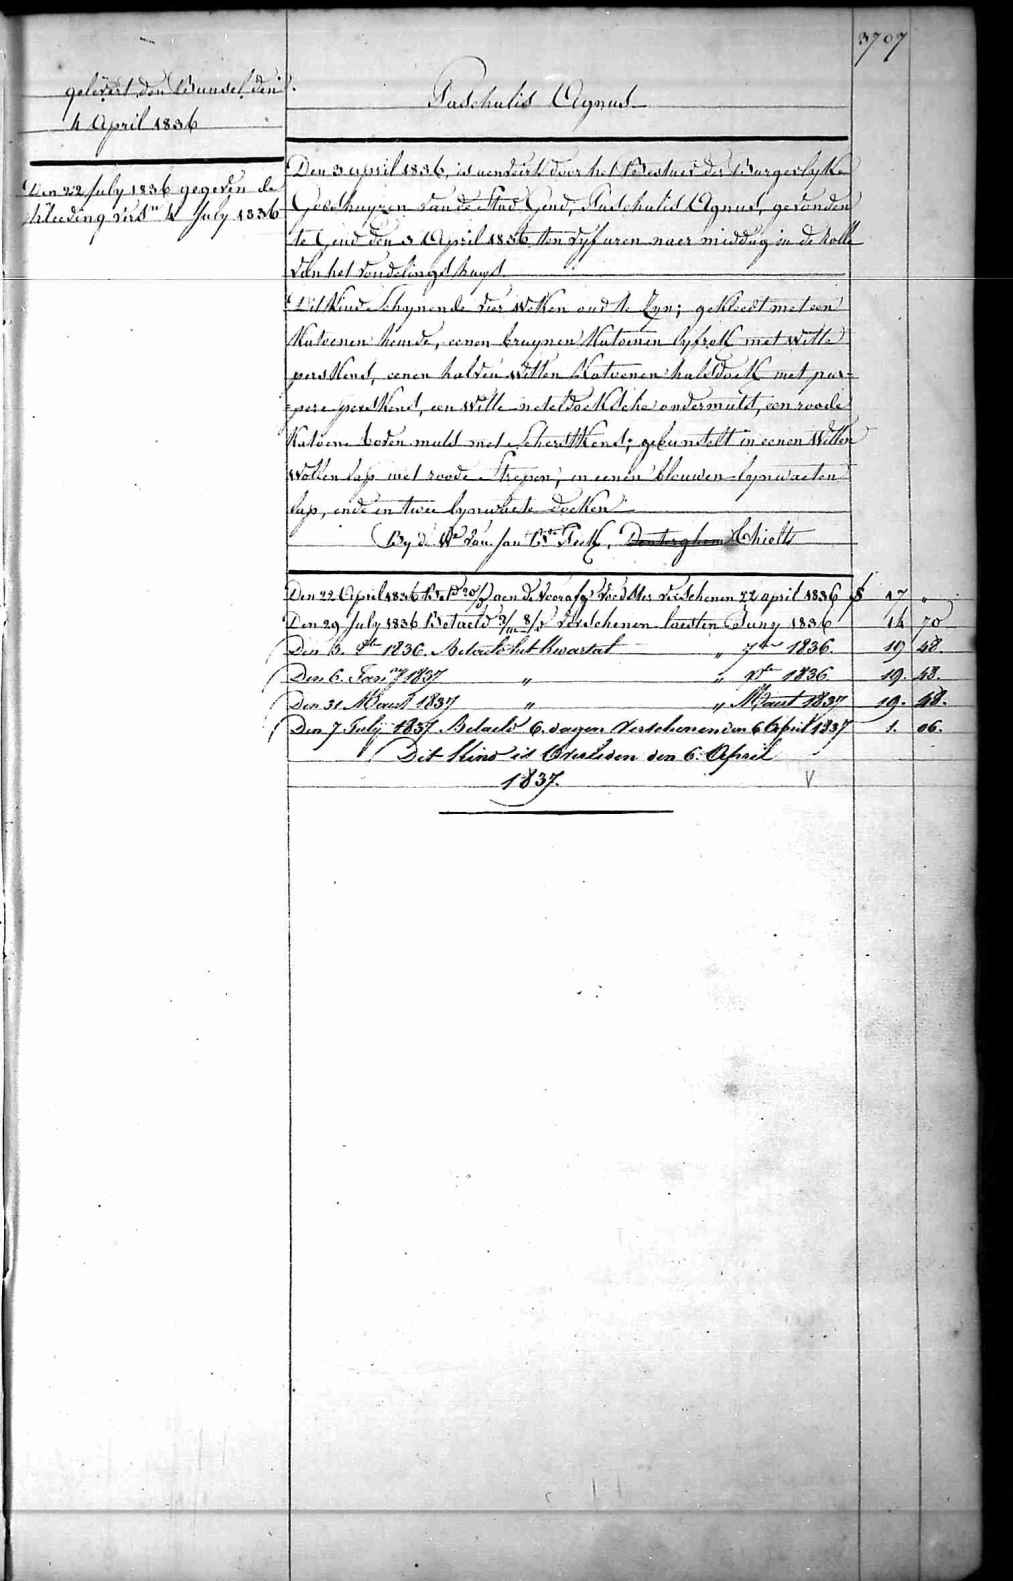 3707
gelevert den Bunsel den
4 April 1836
Paschalis Agnus
Den 22 July 1836 gegeven de
kleeding vers.n 4 July 1836
Den 3 april 1836, is aenveird door het Bestuer der Burgerlyke
Godshuyzen van de Stad Gend, Paschalis Agnus, gevonden
te Gend den 3 April 1836 ten vyf uren naer middag in de Rolle
van het vondelingshuys.
Dit Kind schynende vier weken oud te zyn; gekleedt met een
Katoenen hemde, eenen bruynen Katoenen lyfrok met witte
perskens, eenen halven witten Katoenen halsdoek met pur=
=pere perskens, een witte neteldoeksche ondermuts, een roode
Katoene bovenmuts met; gebunselt in eenen witten
wollen lap met roode strepen, in eenen blauwen lynwaeten
lap, ende in twee lynwaete doeken
By d' We van Jan Bte, Denterghem Thielt
Den 22 April 1836 aen de voorafg verschenen 22 april 1836 17 "
Den 29 July 1836 Betaeld verschenen laesten Juny 1836 14 70
Den 8bre 1836. Betaelt het Kwartal " 7bre 1836. 19 48.
Den 6. Janry 1837 " " Xbre 1836 19. 48.
Den 31 Maart 1837 " " Maart 1837 19. 48.
Den 7 July 1837 Betaeld 6. dagen Verschenen den 6 April 1837 1. 06.
Dit Kind is Overleden den 6. April
1837. V